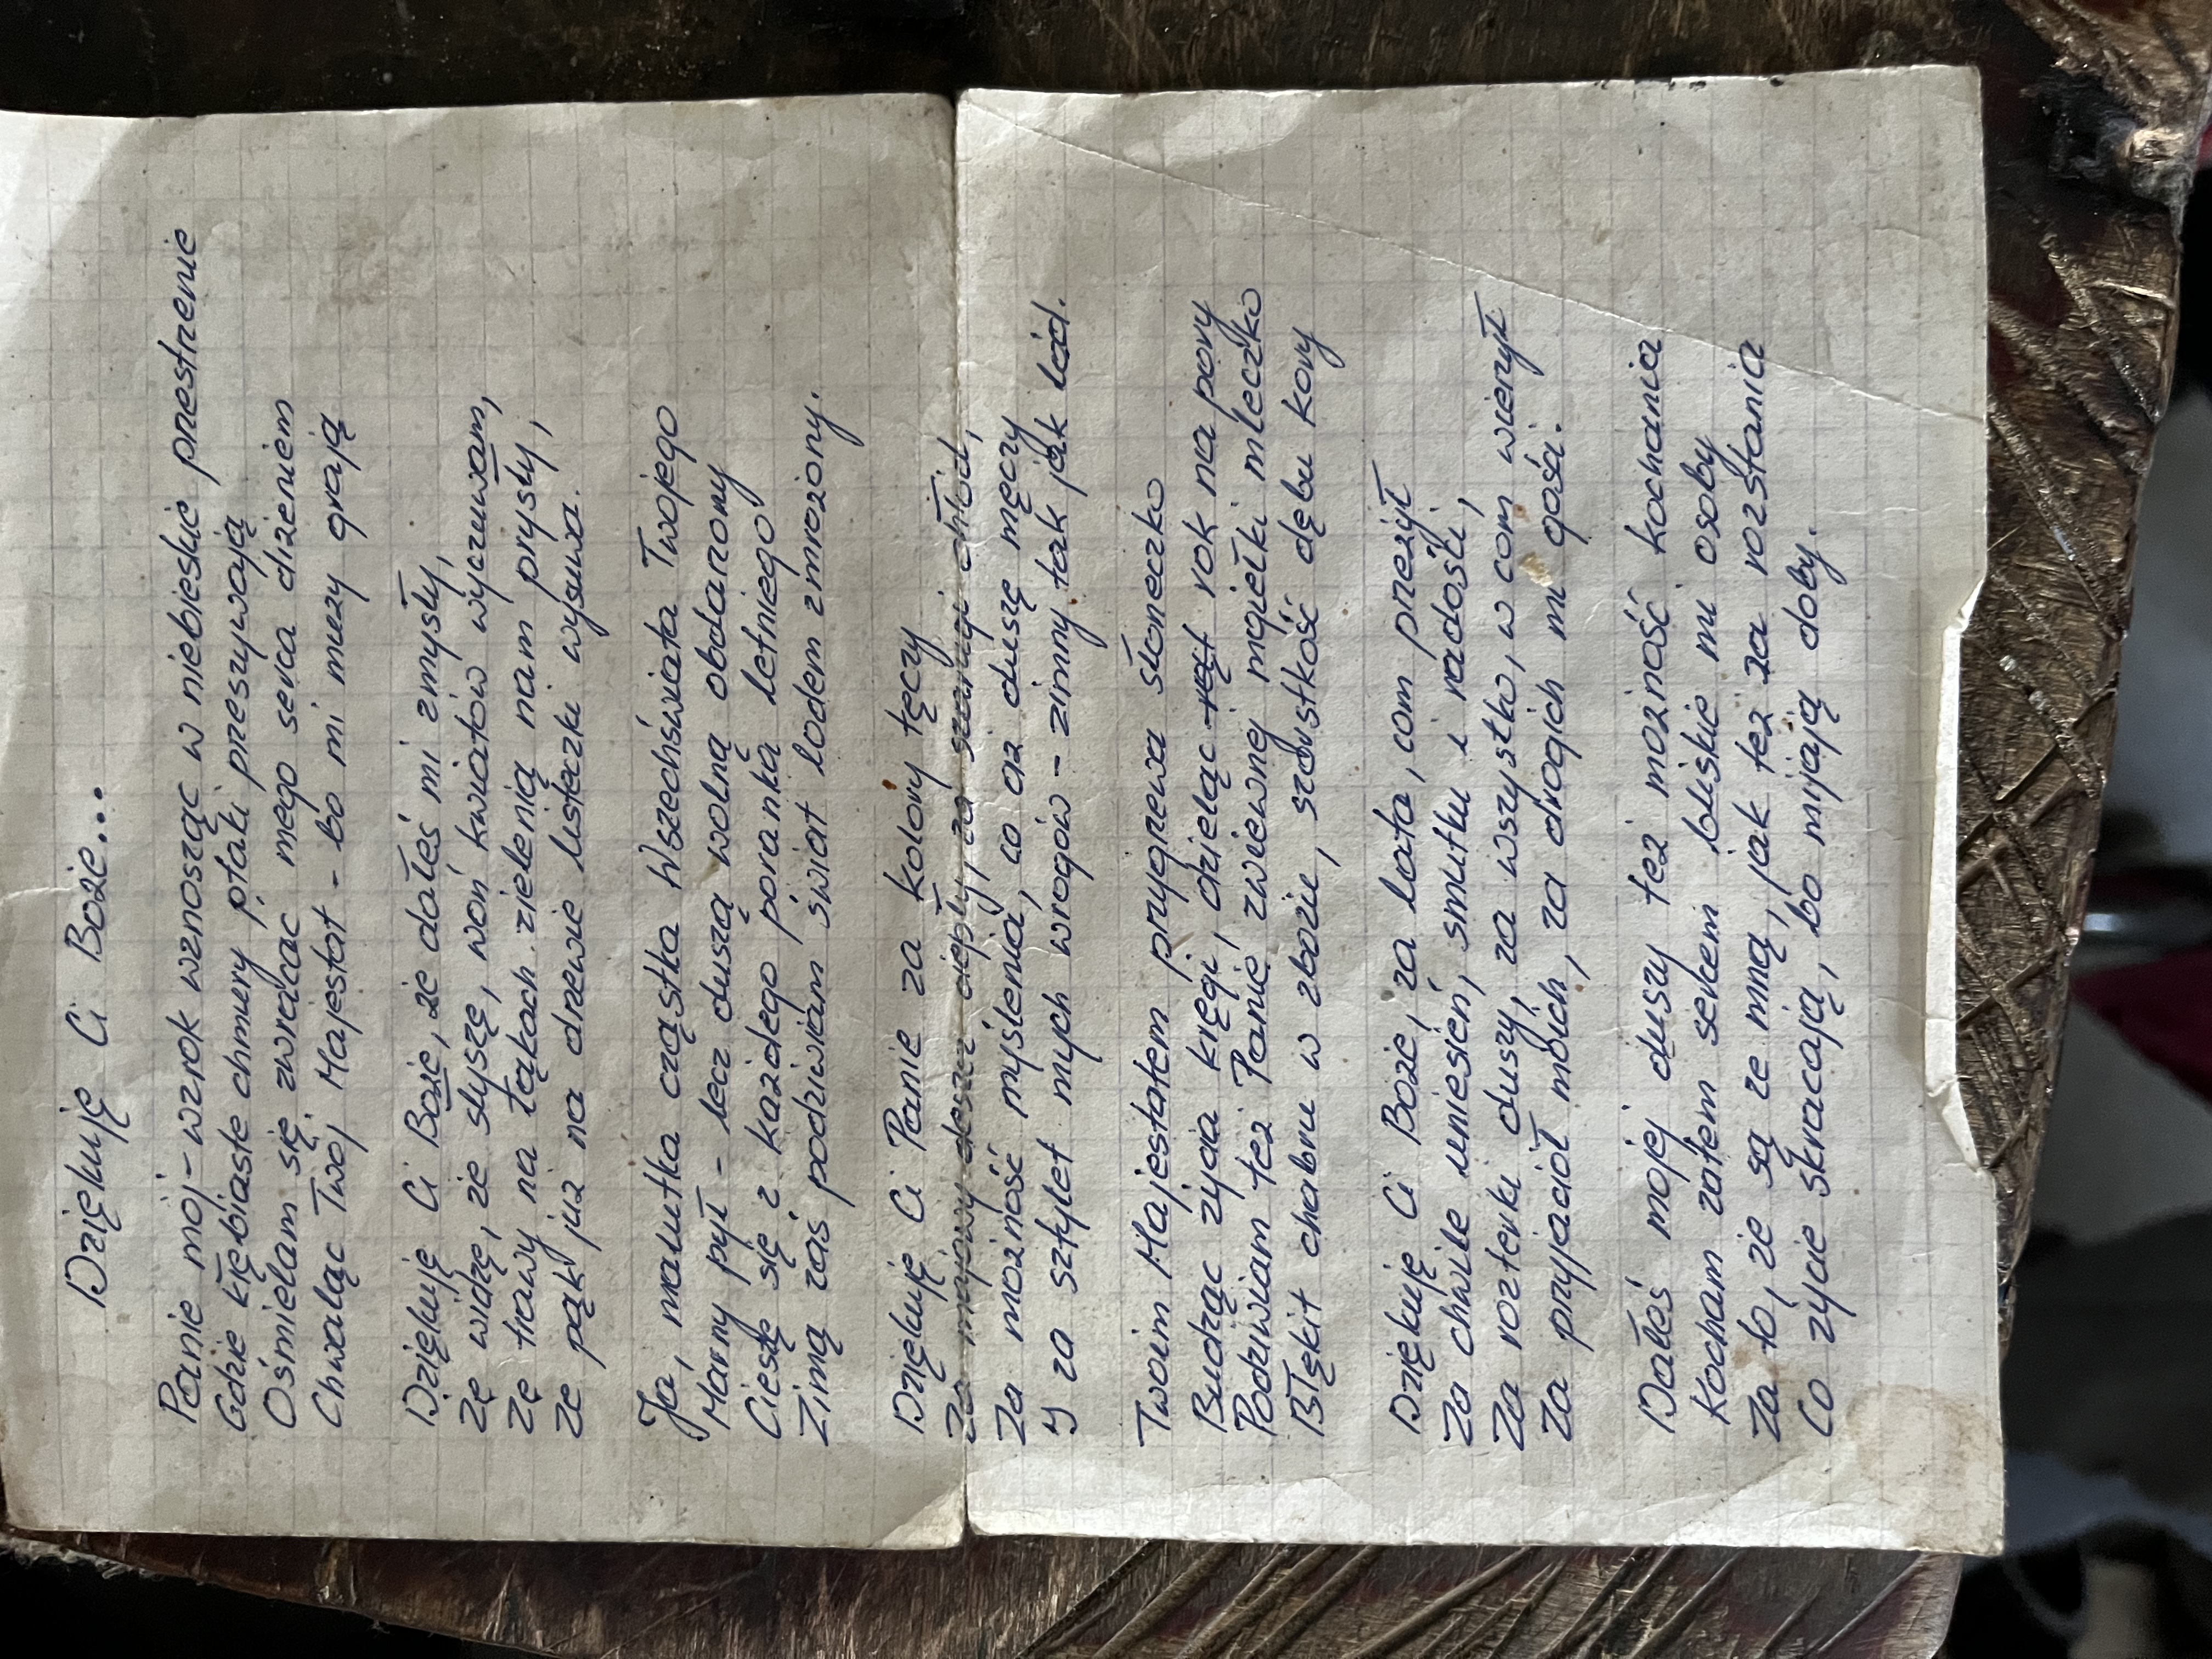 Dziękuję Ci Boże...
Panie mój - wzrok wznosząc w niebieskie przestrzenie
Gdzie kłębiaste chmury ptaki przeszywają
Ośmielam się zwracać mego serca drżeniem
Chwaląc Twój Majestat - bo mi muzy grają
Dziękuję Ci Boże, że dałeś mi zmysły,
Że widzę, że słyszę, woń kwiatów wyczuwam,
Że trawy na łąkach zielenią nam prysły,
Że pąk już na drzewie listeczki wysuwa.
Ja, malutka cząstka Wszechświata Twojego
Marny pył - lecz duszą wolną obdarzony
Cieszę się z każdego poranka letniego
Zimą zaś podziwiam świat lodem zmrożony.
Dziękuję Ci Panie za kolory tęczy
Za majowy deszcz ciepły, za szarugi chłód,
Za możność myślenia, co aż duszę męczy
I za sztylet mych wrogów - zimny tak jak lód.
Twoim Majestatem przygrzewa słoneczko
Budząc życia kręgi, dzieląc rok na pory
Podziwiam też Panie zwiewnej mgiełki mleczko
Błękit chabru w zbożu, szorstkość dębu kory
Dziękuję Ci Boże, za lata, com przeżył
Za chwile uniesień, smutku i radości,
Za rozterki duszy, za wszystko, w com wierzył
Za przyjaciół moich, za drogich mi gości.
Dałeś mojej duszy też możność kochania
Kocham zatem sercem bliskie mi osoby
Za to, że są ze mną, jak też za rozstania
Co życie skracają, bo mijają doby.